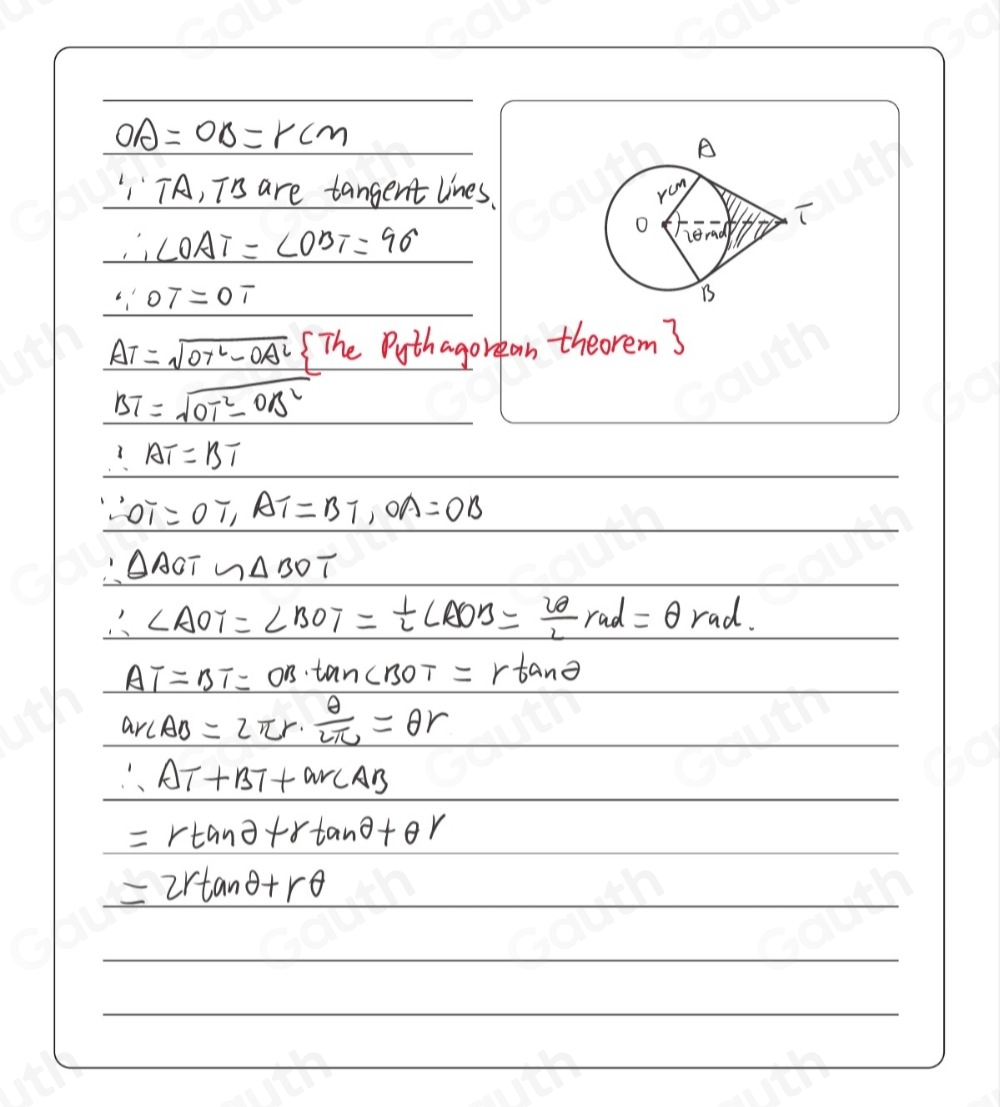 OA = OB = r cm
∵ TA, TB are tangent lines.
∴ ∠OAT = ∠OBT = 90°
∵ OT = OT
AT = √OT² - OA² {The Pythagorean theorem}
BT = √OT² - OB²
∴ AT = BT
∵ OT = OT, AT = BT, OA = OB
∴ △AOT ∽ △BOT
∴ ∠AOT = ∠BOT = 1/2 ∠AOB = 2θ/2 rad = θ rad.
AT = BT = OB · tan∠BOT = r tanθ
arcAB = 2πr · θ/2π = θr
∴ AT + BT + arcAB
= r tanθ + r tanθ + θr
= 2r tanθ + rθ
A
r cm
O
2θ rad
T
B
Gauth